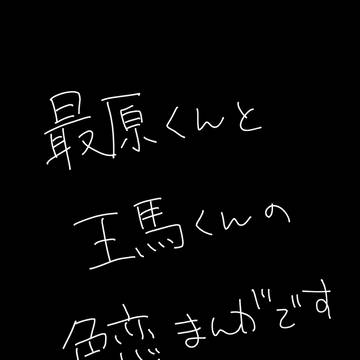 最原くんと
王馬くんの
色恋まんがです